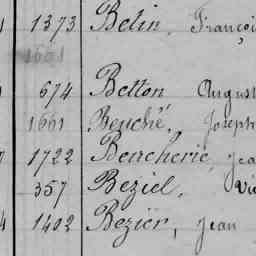 1373 Belin, Franço
1661
674 Betton August
1661 Beuché, Joseph
1722 Beucherie, Jea
357 Beziel, Vi
1402 Bezier, Jean